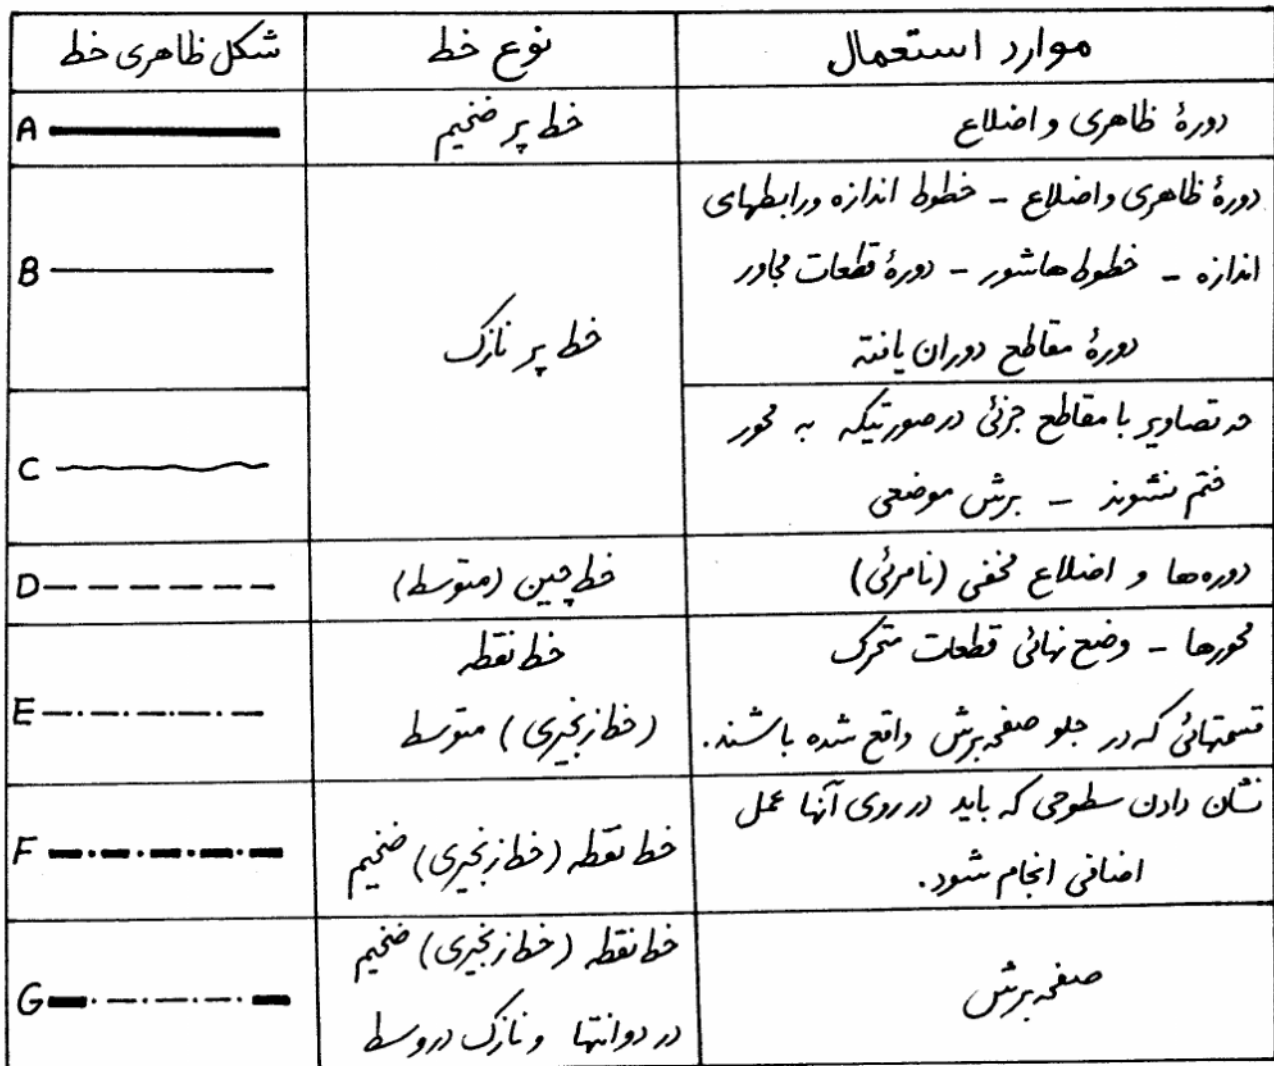 موارد استعمال
نوع خط
شکل ظاهری خط
دورهٔ ظاهری و اضلاع
خط پر ضخیم
A
دورهٔ ظاهری و اضلاع – خطوط اندازه ورابطهای
اندازه – خطوط هاشور – دورهٔ قطعات مجاور
دورهٔ مقاطع دوران یافته
خط پر نازک
B
حد تصاویر با مقاطع جزئی درصورتیکه به محور
ختم نشوند – برش موضعی
C
دوره‌ها و اضلاع مخفی (نامرئی)
خط چین (متوسط)
D
محورها – وضع نهائی قطعات متحرک
قسمتهائی که در جلو صفحه برش واقع شده باشند.
خط نقطه
(خط زنجیری) متوسط
E
نشان دادن سطوحی که باید در روی آنها عمل
اضافی انجام شود.
خط نقطه (خط زنجیری) ضخیم
F
صفحه برش
خط نقطه (خط زنجیری) ضخیم
در دو انتها و نازک در وسط
G